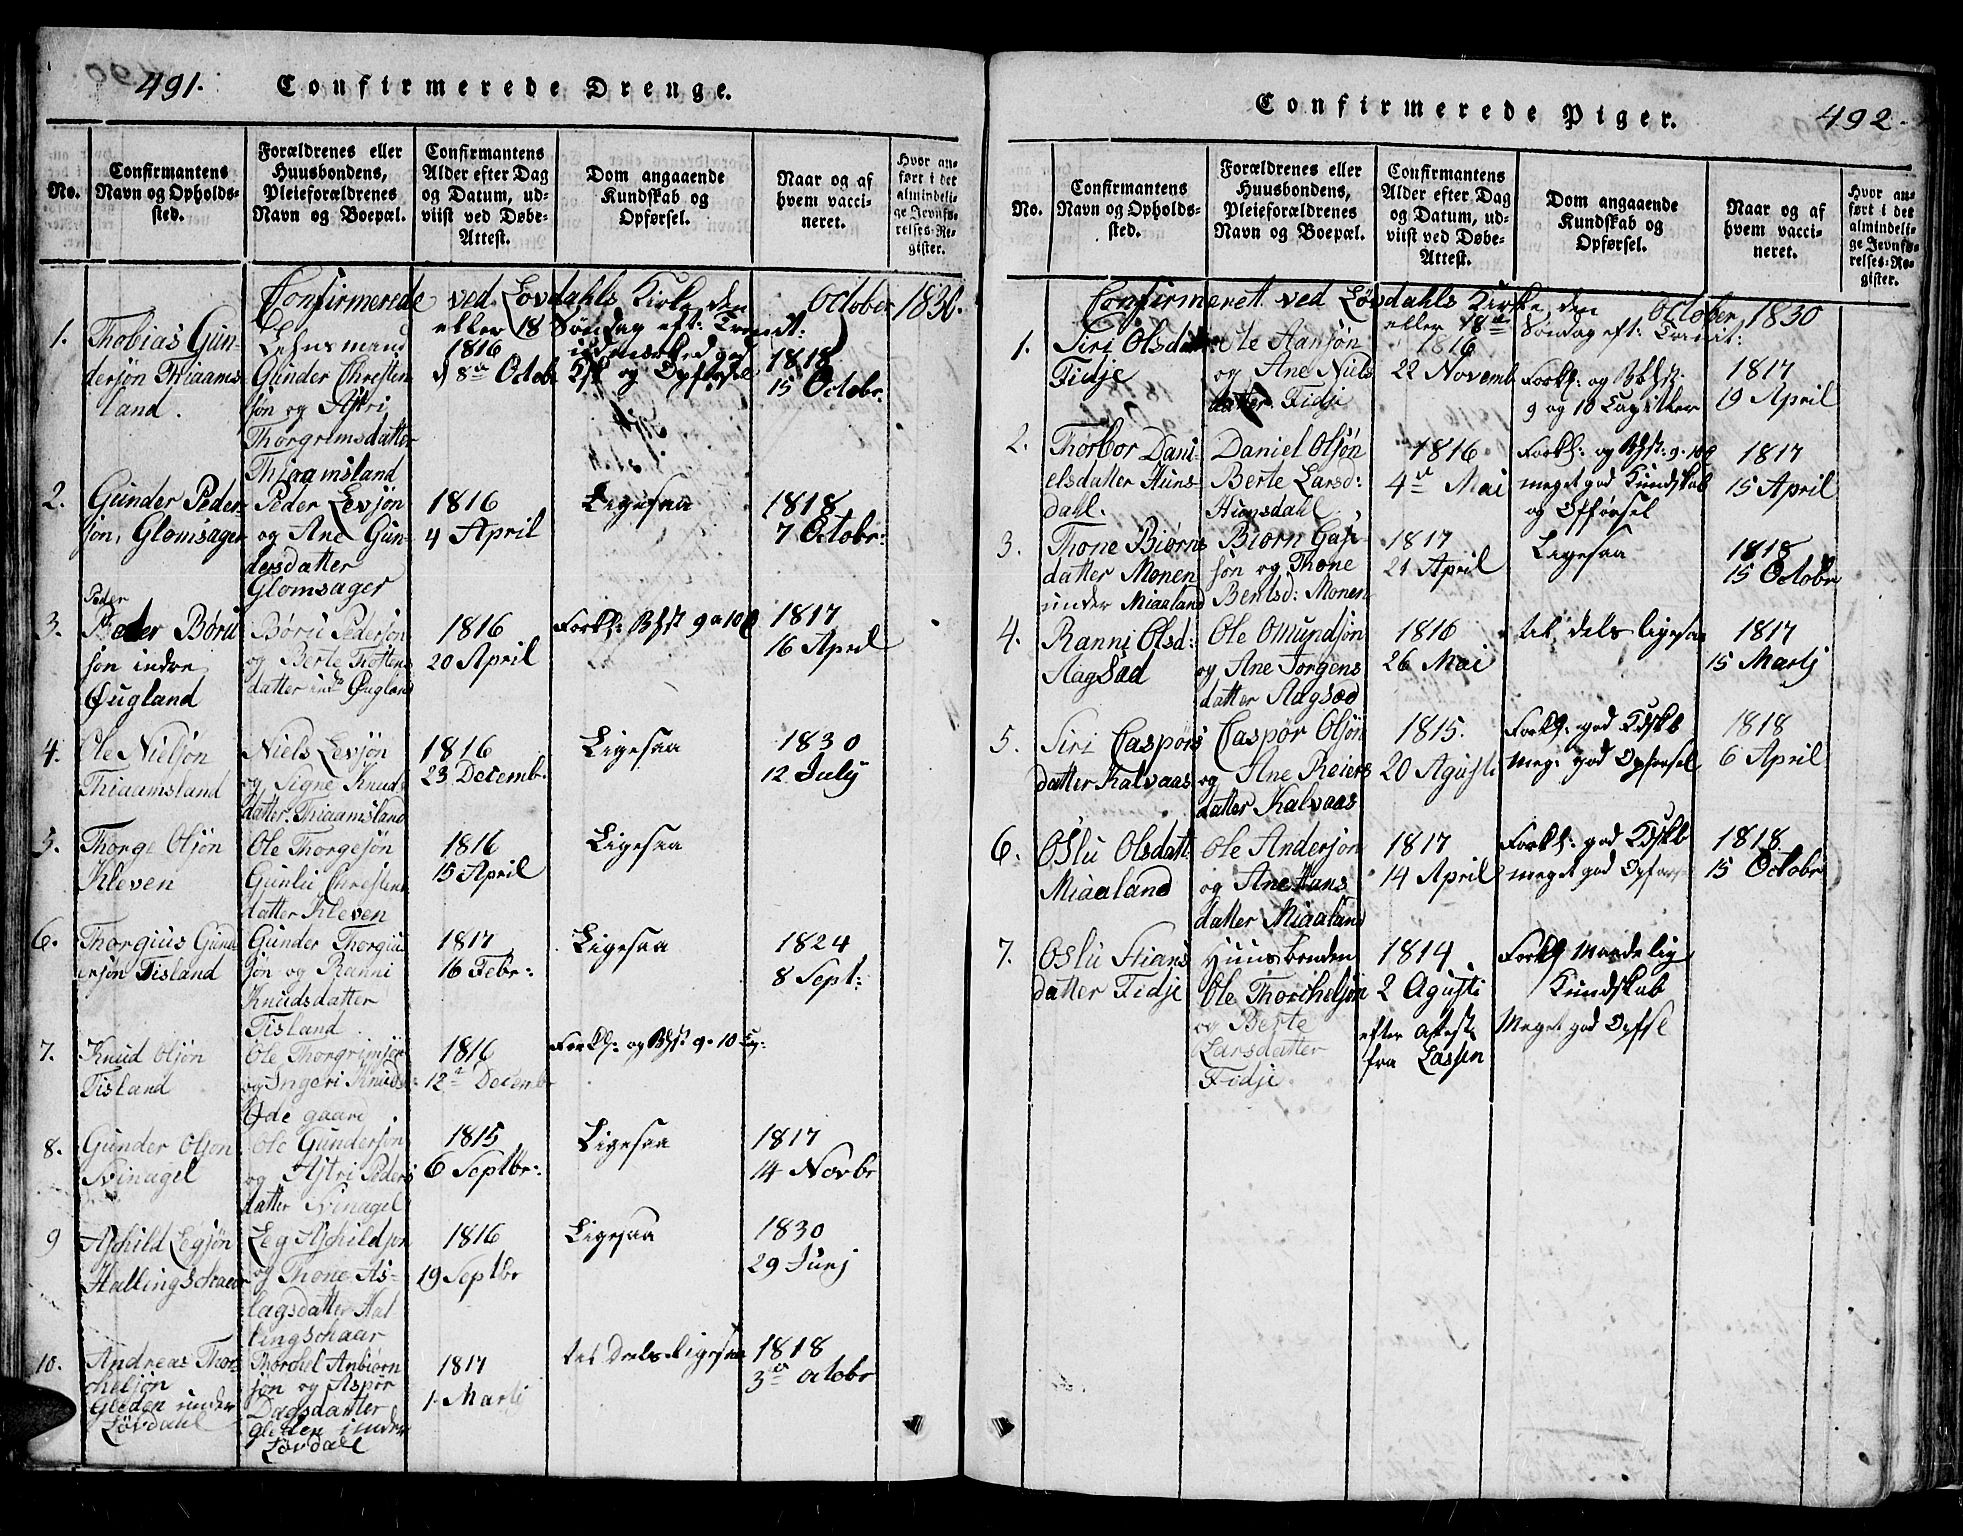 491.
Confirmerede Drenge.
No.
Confirmantens
Navn og Opholds-
sted.
Forældrenes eller
Huusbondens,
Pleieforældrenes
Navn og Boepæl.
Confirmantens
Alder efter Dag
og Datum, ud-
viist ved Døbe-
Attest.
Dom angaaende
Kundskab og
Opførsel.
Naar og af
hvem vacci-
neret.
Hvor an-
ført i det
almindeli-
ge Jevnfø-
relses-Re-
gister.
Confirmerede ved Løvdahls Kirke den October 1830.
eller 18 Søndag eft: Trenit:
1.
Thobias Gun-
dersøn Thiaams
land.
Lehnsmand
Gunder Christen
søn og Astri
Thorgrimsdatter
Thiaamsland
1816
8de Octob
udmærked god
og Opførsel
1818
15 Octobr.
2.
Gunder Peder-
søn, Glomsager
Peder Levsøn
og Ane Gun-
dersdatter
Glomsager
1816
4 April
Ligesaa
1818
7 Octobr:
3.
Peder
Peder Børu
søn indre
Øugland
Børu Pedersøn
og Berte Tostens
datter ind: Øugland
1816
20 April
1817
16 April
4.
Ole Nielsøn
Thiaamsland
Niels Levsøn
og Signe Knuds
datter Thiaamsland
1816
23 Decemb.
Ligesaa
1830
12 July
5.
Thorge Olsøn
Kleven
Ole Thorgesøn
Gunlu Christens
datter Kleven
1816
15 April
Ligesaa
6.
Thorgius Gund
ersøn Tisland
Gunder Thorgiu
søn og Ranni
Knudsdatter
Tisland
1817
16 Febr:
Ligesaa
1824
8 Sept:
7.
Knud Olsøn
Tisland
Ole Thorgrimsøn
og Ingeri Knuds:
Øde gaard
1816
12te Decembr
8.
Gunder Olson
Svinagel
Ole Gundersøn
og Astri Peders
datter Svinagel
1815
6 Septbr:
Ligesaa
1817
14 Novbr
9
Aschild Legsøn
Hallingschaar
Leg Aschildsøn
og Thone As-
lagsdatter Hal
lingschaar
1816
19 Septbr
Ligesaa
1830
29 Junj
10.
Andreas Thor-
chelsøn
Gleden under
Løvdahl
Thorchel Anbiørn
søn og Aspør
Dagsdatter
gleden under
Løvdall
1817
1. Martj
til Deels Ligesaa
1818
3de Octobr
Confirmerede Piger.
492.
No.
Confirmantens
Navn og Opholds-
sted.
Forældrenes eller
Huusbondens,
Pleieforældrenes
Navn og Boepæl.
Confirmantens
Alder efter Dag
og Datum, ud-
viist ved Døbe-
Attest.
Dom angaaende
Kundskab og
Opførsel.
Naar og af
hvem vacci-
neret.
Hvor an-
ført i det
almindeli-
ge Jevnfø-
relses-Re-
gister.
Confirmeret ved Løvdahls Kirke den October 1830
eller 18de Søndag eft: Trenit:
1.
Siri Olsdat:
Fidje
Ole Aansøn
og Ane Niels
datter Fidje
1816
22 Novemb
9 og 10 Capitler
1817
19 April
2.
Thorbor Dani-
elsdatter Huns-
dahl.
Daniel Olsøn
Berte Larsd:
Hunsdahl.
1816
4de Mai
meget god Kundskab
og Opførsel
1817
15 April
3.
Thone Biørns
datter Monen
under Miaaland
Biørn
søn og Thone
Bentsd: Monen
1817
21 April
Ligesaa
1818
15 Octobr
4.
Ranni Olsd:
Aagsød
Ole Omundsøn
og Ane Torgens
datter Aagsød
1816
26 Mai
til dels ligesaa
1817
15 Martj
5.
Siri Caspørs
datter Kalvaas
Caspør Olsøn
og Ane Reiers
datter Kalvaas
1815.
20 Agusti
Meg: god Opførsel
1818
6 April
6.
Oslu Olsdatt.
Miaaland
Ole Andersøn
og Ane Hans
datter Miaaland
1817
14 April
meget god
1818.
15 Octobr
7.
Oslu Stians
datter Fidje
Huusbonden
Ole Thorchelsøn
og Berte
Larsdatter
Fidje
1814.
2 Agusti
efter Attest
fra Lassen
Maadelig
Kundskab
Meget god